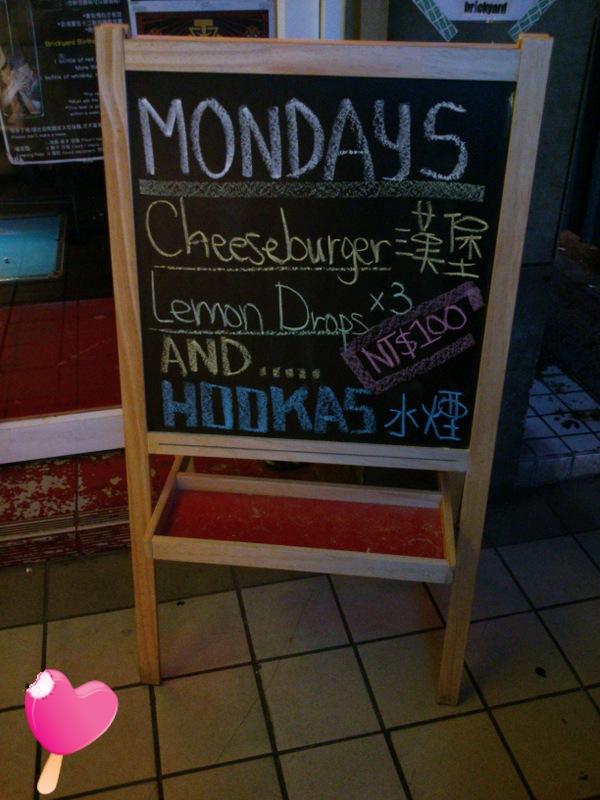 brickyard
MONDAYS
Cheeseburger 漢堡
Lemon Drops x3
NT$100
AND.....
HOOKAS 水煙